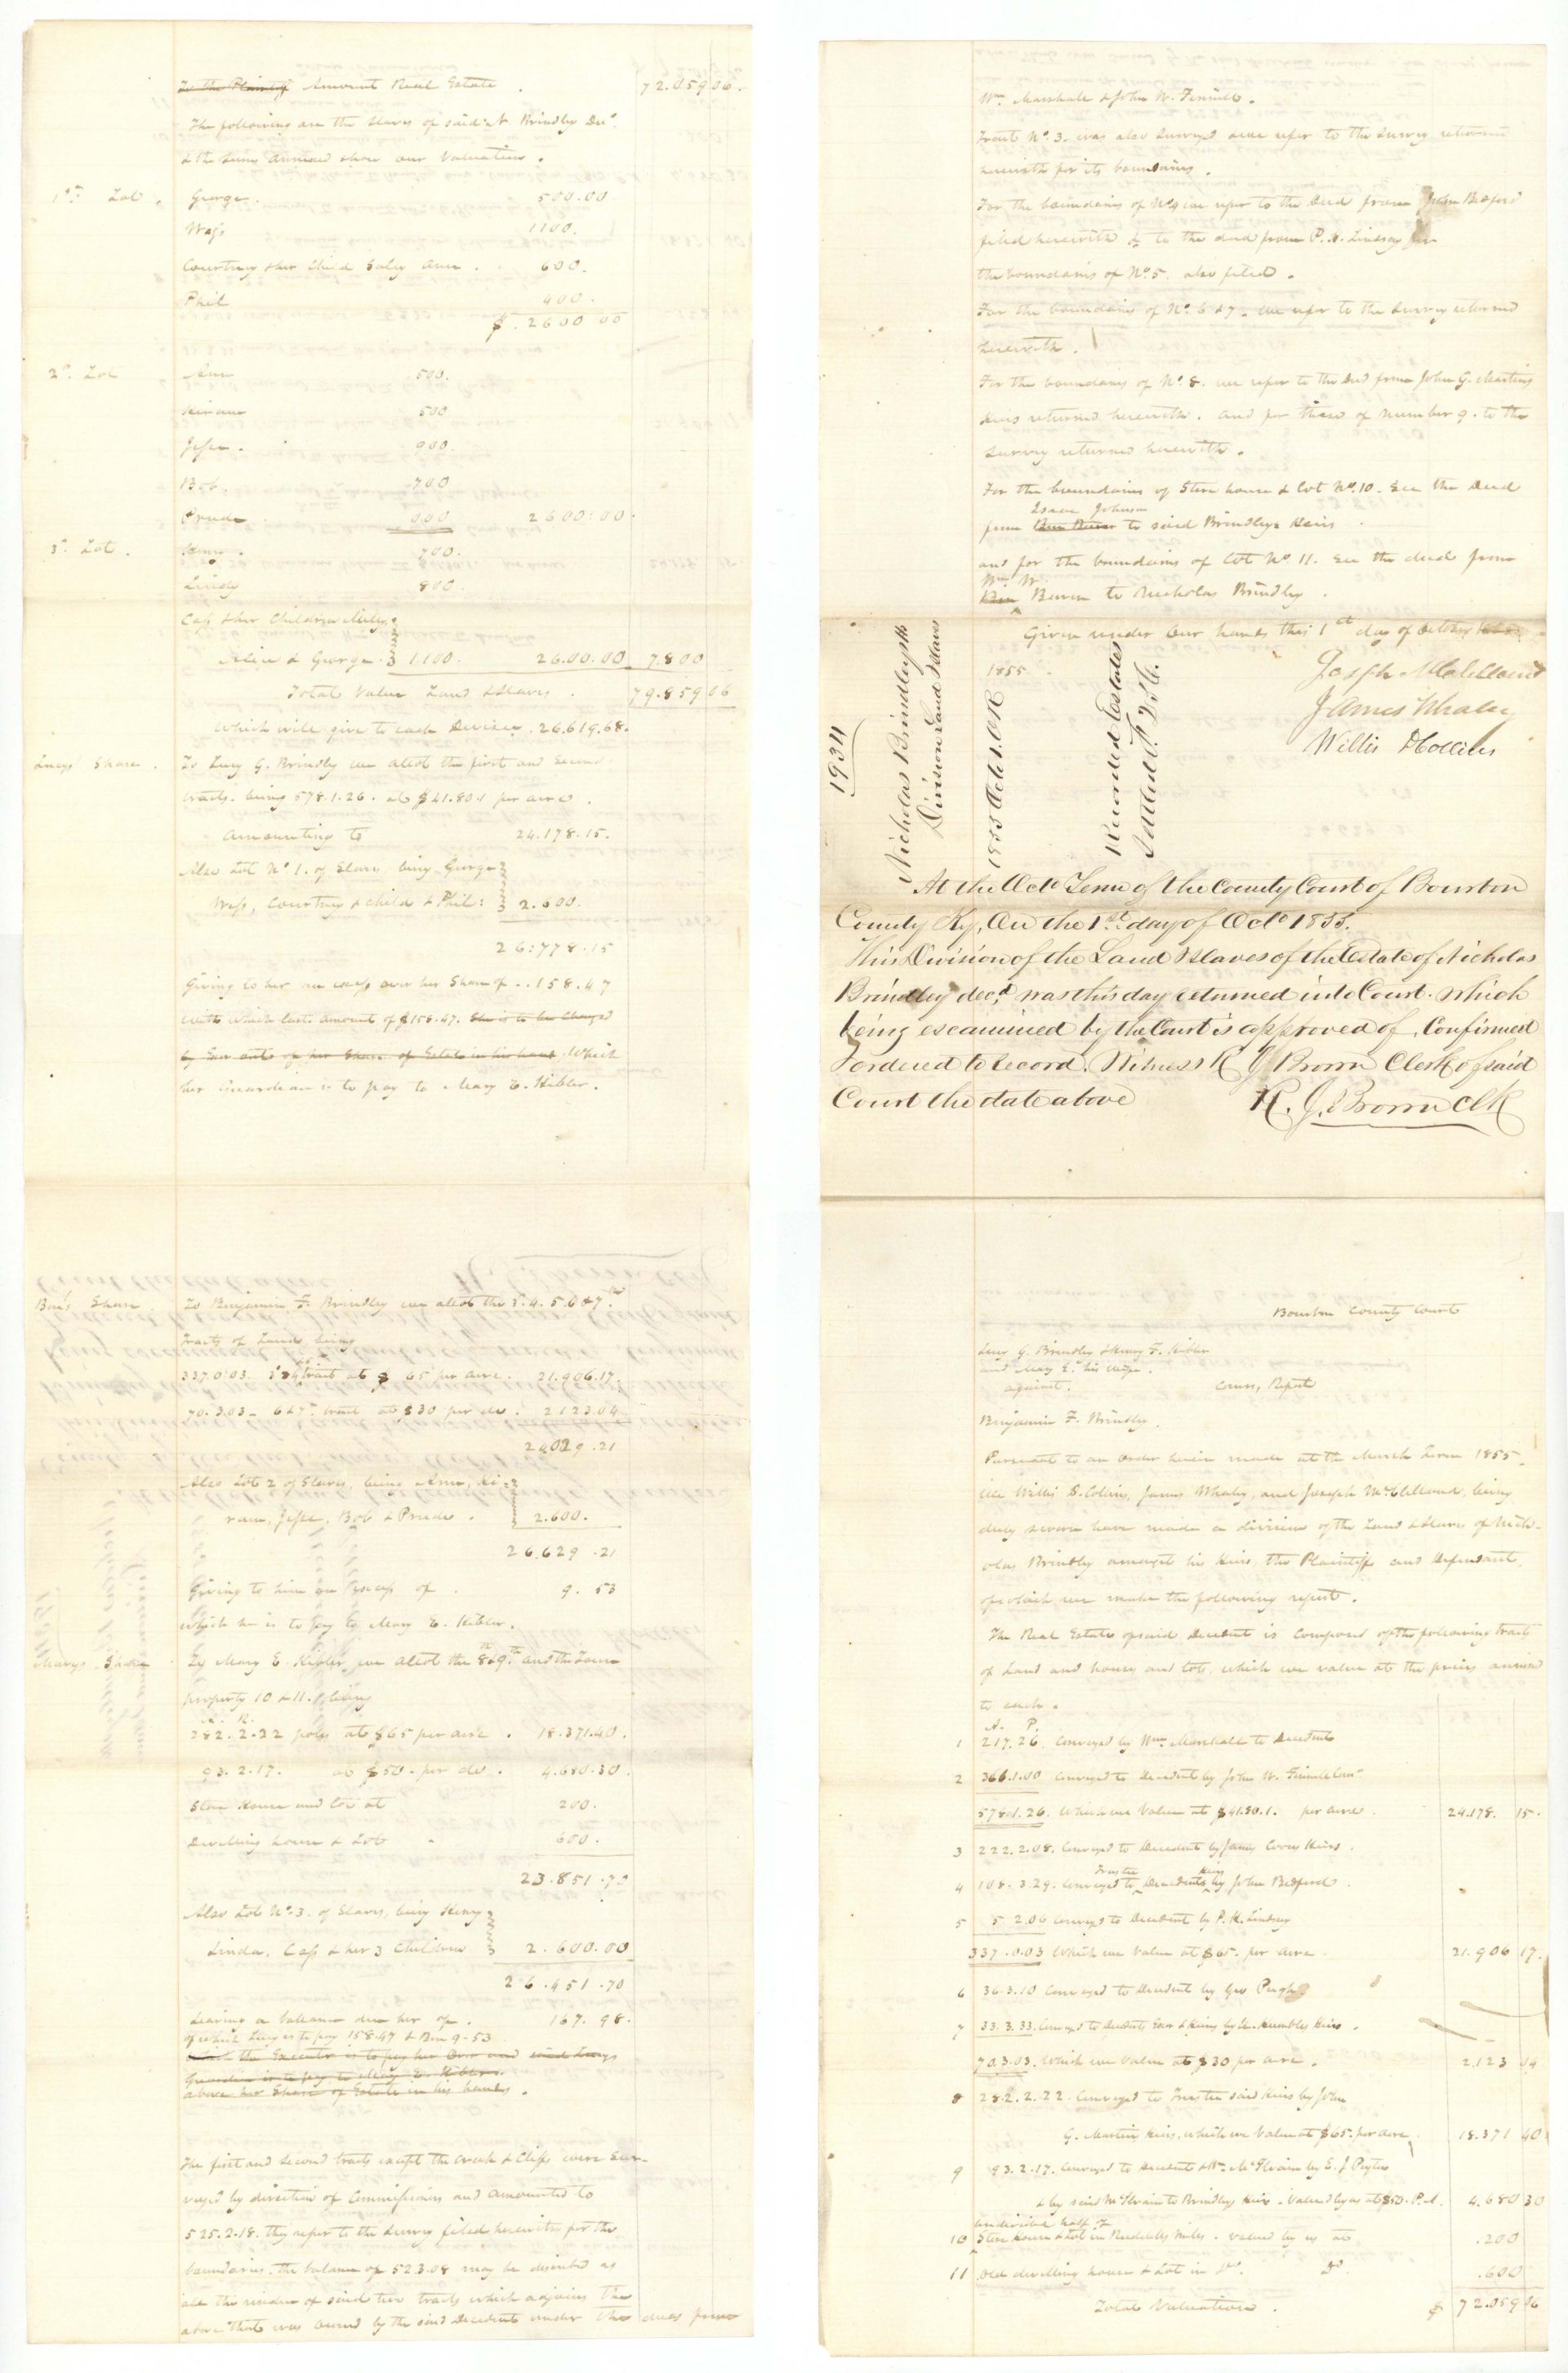 To the Plaintiff Amount Real Estate . 72.059 06.
The following are the Slaves of said N Brindley Decd
& the sums annexed show our Valuation .
1st Lot . George . 500.00
Wesp 1100.
Courtney & her Child Saley Ann . 600.
Phil 400.
$ . 2600 00
2d. Lot Ann 500.
Hiram 500
Jesse . 900.
Bob . 700
Prude . 2600:00.
3d. Lot . Henry . 700.
Lindy 800
Cass & her Children Miley,
Alice & George . 1100. 26.00.00 7.800
Total Value Land & Slaves . 79.859 06
Which will give to each Devisee . 26.619.68.
Lucys Share . To Lucy G. Brindley we allot the first and second
tracts . being 578.1.26. at $41.80.1 per acre .
Amounting to 24.178.15.
Also Lot No 1. of Slaves being George
Wesp, Courtney & child & Phil : 2.600.
26:778.15
Giving to her an excess over her Share of . . 158.47
with which last amount of $158.47. She is to be Charged
by Executor of her Share of Estate in his hands, Which
her Guardian is to pay to Mary E. Kibler .
Ben's Share . To Benjamin F. Brindley we allot the 3.4.5.6 & 7th
Tracts of Land, being
337.0.03. tract at $ 65 per acre . 21.906.17.
70.3.03 - 6 & 7th tract at $30 per do . 2.123.04
24029.21
Also Lot 2 of Slaves, being Ann, Hi-
ram, Jesse, Bob & Prude . 2.600.
26.629 .21
Giving to him an Excess of . 9. 53
which he is to pay to Mary E. Kibler .
Marys Share . To Mary E. Kibler we allot the 8 & 9th and the Town
property 10 & 11. being
A. R.
282.2.22 poles at $65 per acre . 18.371.40.
93.2.17. at $50 . per do . 4.680.30.
Store House and Lot at 200.
Dwelling house & Lot - 600.
23.851.70
Also Lot No. 3. of Slaves, being Henry
Linda, Cass & her 3 Children 2.600.00
26.451.70
Leaving a balance due her of . 167. 98.
of which Lucy is to pay 158.47 & Ben 9.53
which the Executor is to pay her Over and said Lucys
Guardian is to pay to Mary E. Kibler .
above her Share of Estate in his hands .
The first and second tracts except the creek & Cliffs were Sur-
veyed by direction of Commissioners and amounted to
525.2.18. they refer to the Survey filed herewith for the
boundaries . the balance of 52.3.08 may be described as
all the residue of said two tracts which adjoins the
above that was owned by the said Decedent under the deeds from
Wm. Marshall & John W. .
Tract No. 3. was also Surveyed and we refer to the Survey returned
herewith for its boundaries .
For the boundaries of No 4 we refer to the Deed from John Bedford
filed herewith & to the deed from P. H. Lindsay for
the boundaries of No. 5. also filed .
For the boundaries of No. 6 & 7 . we refer to the Survey returned
herewith .
For the boundaries of No. 8. we refer to the Deed from John G. Martins
heirs returned herewith . and for those of number 9. to the
Survey returned herewith .
For the boundaries of Store house & Lot No. 10. See the Deed
Isaac Johnson
from to said Brindleys Heirs .
and for the boundaries of Lot No. 11. See the deed from
Wm W.
Ben Bowen to Nicholas Brindley .
Given under Our hands this 1st day of October
1855 .
Joseph McClelland
James Whaley
Willis D Collins
1934
Nicholas Brindleys Hs
Division Land & Slaves
1855 Octo 1. O R
Recorded Estates
Settled 256.
At the Octo Term of the County Court of Bourbon
County Ky, On the 1st day of Octo 1855.
This Division of the Land & Slaves of the Estate of Nicholas
Brindley decd was this day returned into Court. which
being examined by the Court is approved of, Confirmed
& ordered to record. Witness R J Brown Clerk of said
Court the date above R. J. Brown Clk
Bourbon County Court
Lucy G. Brindley & Henry F. Kibler
and Mary E. his wife .
against . Comrs, Report
Benjamin F. Brindley .
Pursuant to an Order herein made at the March Term 1855 .
We Willis D. Collins, James Whaley, and Joseph McClelland, being
duly sworn have made a division of the Land & Slaves of Nich-
olas Brindley amongst his Heirs, the Plaintiffs and Defendant,
of which we make the following report .
The Real Estate of said Decedent is Composed of the following tracts
of Land and houses and lots, which we value at the prices annexed
to each .
A. P.
1 217.26. Conveyed by Wm. Marshall to Decedent
2 366.1.00 Conveyed to Decedent by John W.
578.1.26. Which we Value at $41.80.1. per acre . 24.178. 15.
3 222.2.08. Conveyed to Decedent by James Heirs .
Trustee heirs
4 108.3.29. Conveyed to Decedents by John Bedford .
5 5.2.06 Conveyed to Decedent by P. H. Lindsay
337.0.03 Which we Value at $65. per acre 21.906 17.
6 36.3.10 Conveyed to Decedent by Geo Pugh
7 33.3.33. Conveyed to Decedents Exor & Heirs by Heirs .
70.3.03. Which we Value at $30 per acre . 2.123 04
8 282.2.22. Conveyed to Trustee said Heirs by John
G. Martins Heirs, which we Value at $65. per acre, 18.371 40
9 93.2.17. Conveyed to Decedent & Wm. McIlvain by E. J. Peyton
& by said McIlvain to Brindleys Heirs . Valued by us at $50 . P. A. 4.680 30
undivided half of
10 Store house & Lot in Ruddells Mills . valued by us at .200
11 Old dwelling house & Lot in do. do .600
Total Valuation . $ 72.059 06